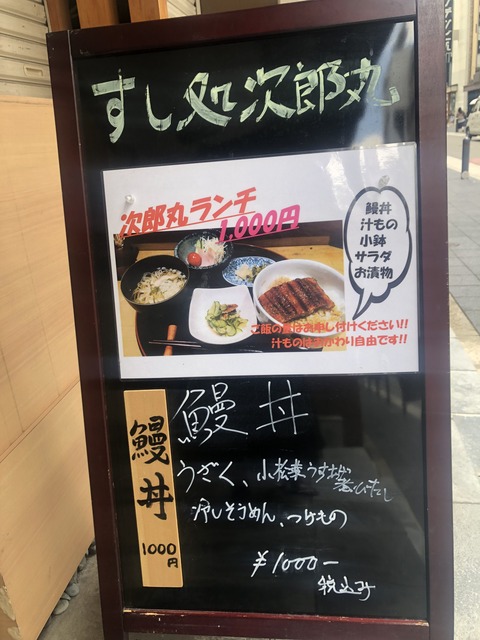 すし処次郎丸
次郎丸ランチ
1,000円
鰻丼
汁もの
小鉢
サラダ
お漬物
ご飯の量はお申し付けください!!
汁ものはおかわり自由です!!
鰻丼
1000円
鰻丼
うざく、小松菜うすあげ
煮びたし
冷しそうめん、つけもの
¥1000-
税込み